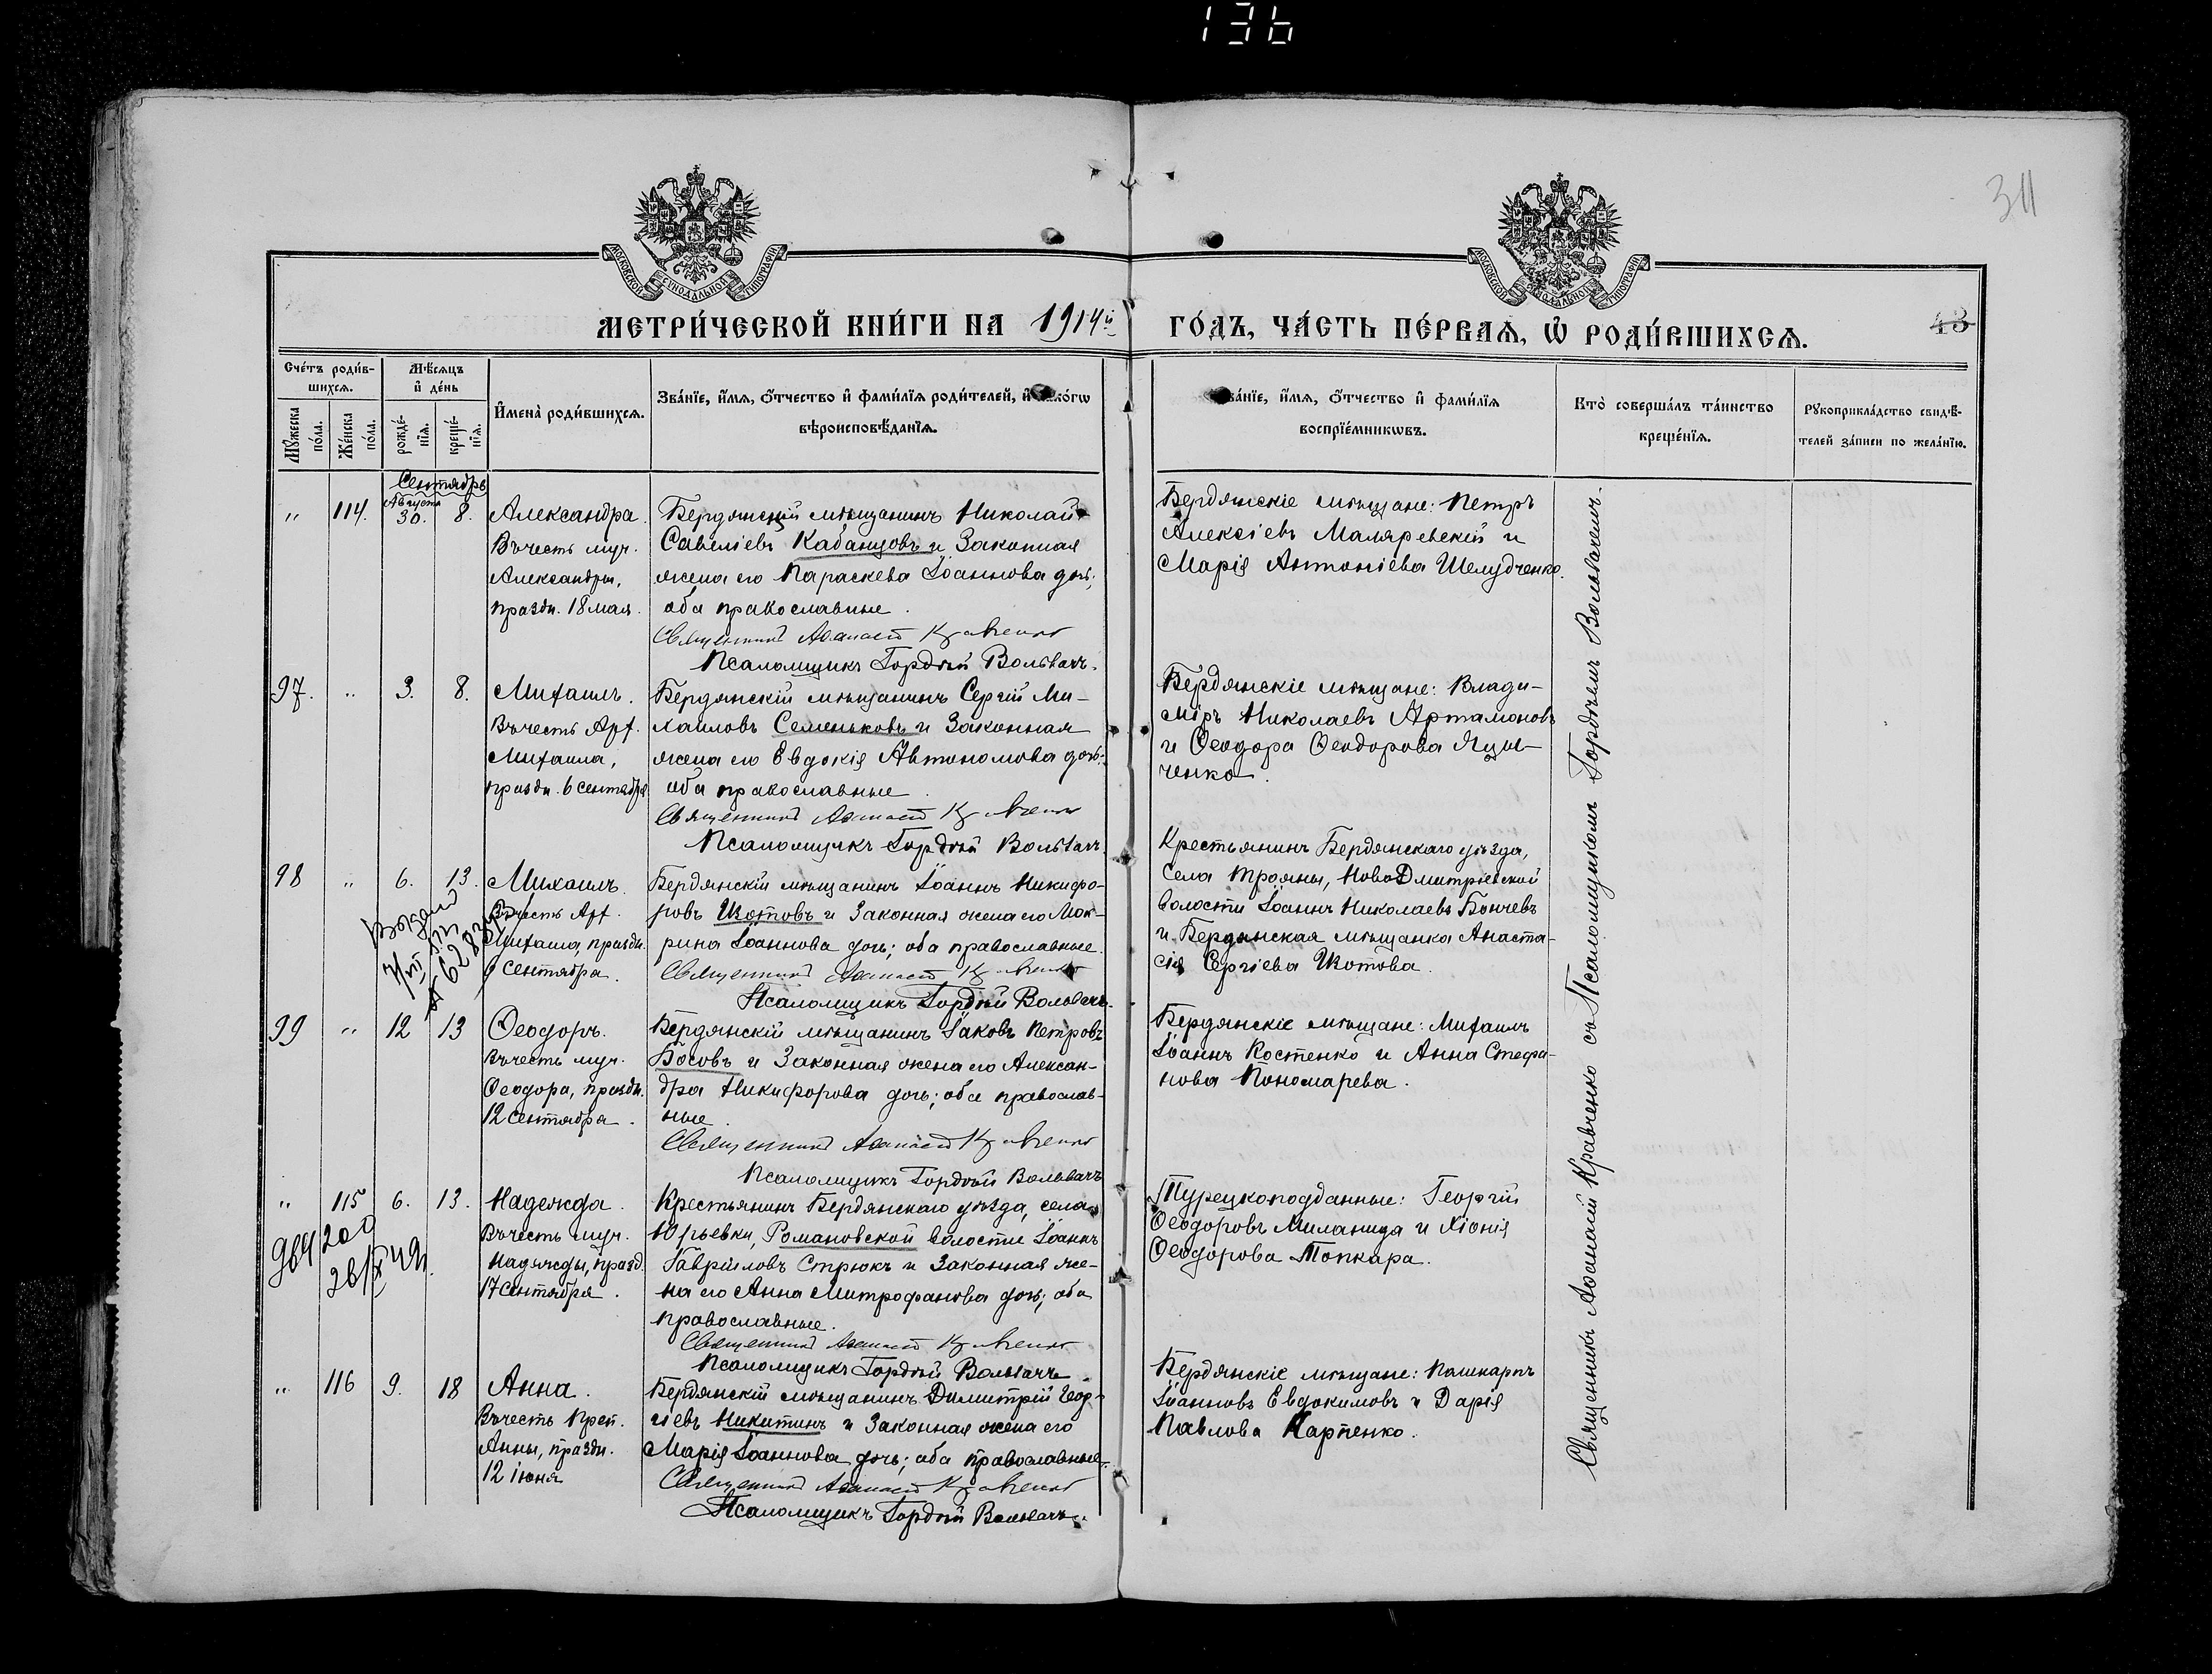 136
311
МОСКОВСКОЙ СУНОДАЛЬНОЙ ТИПОГРАФІИ
МОСКОВСКОЙ СУНОДАЛЬНОЙ ТИПОГРАФІИ
МЕТРИ́ЧЕСКОЙ КНИ́ГИ НА 1914й ГО́ДЪ, ЧА́СТЬ ПЕ́РВАѦ, Ѡ҆ РОДИ́ВШИХСѦ.
43
Сче́тъ роди́в-
шихсѧ.
Мꙋжеска по́ла.
Же́нска по́ла.
Мѣ́сѧцъ
и҆ де́нь
рожде́-
нїѧ.
креще́-
нїѧ.
И҆мена̀ роди́вшихсѧ.
Зва́нїе, и҆́мѧ, ѻ҆́тчество и҆ фами́лїѧ роди́телей, и҆ како́гѡ
вѣроисповѣ́данїѧ.
Зва́нїе, и҆́мѧ, ѻ҆́тчество и҆ фами́лїѧ
воспрїе́мникѡвъ.
Кто̀ соверша́лъ та́инство
креще́нїѧ.
Рꙋкоприкла́дство свидѣ́-
телей за́писи по жела́нїю.
Сентябрь
„ 114. Августа 30. 8.
Александра.
Въ честь муч.
Александры,
праздн. 18 мая.
Бердянскій мѣщанинъ Николай
Савеліевъ Кабанцовъ и законная
жена его Параскева Іоаннова дочь;
оба православные.
Священникъ Аѳанасій Кравченко
Псаломщикъ Гордѣй Вольвачъ.
Бердянскіе мѣщане: Петръ
Алексіевъ Маляревскій и
Марія Антоніева Шелудченко.
97. „ 3. 8.
Михаилъ.
Въ честь Арх.
Михаила,
праздн. 6 сентября
Бердянскій мѣщанинъ Сергій Ми-
хаиловъ Семеньковъ и законная
жена его Евдокія Автономова дочь;
оба православные.
Священникъ Аѳанасій Кравченко
Псаломщикъ Гордѣй Вольвачъ.
Бердянскіе мѣщане: Влади-
міръ Николаевъ Артамоновъ
и Ѳеодора Ѳеодорова Яцы-
ченко.
98 „ 6. 13.
Михаилъ.
Въ честь Арх.
Михаила, праздн.
6 сентября.
Бердянскій мѣщанинъ Іоаннъ Никифо-
ровъ Шотовъ и законная жена его Мок-
рина Іоаннова дочь; оба православные.
Священникъ Аѳанасій Кравченко
Псаломщикъ Гордѣй Вольвачъ.
Крестьянинъ Бердянскаго уѣзда,
села Трояны, НовоДмитріевской
волости Іоаннъ Николаевъ Бончевъ
и Бердянская мѣщанка Анаста-
сія Сергіева Шотова.
99 „ 12 13
Ѳеодоръ.
Въ честь муч.
Ѳеодора, праздн.
12 сентября.
Бердянскій мѣщанинъ Іаковъ Петровъ
Босовъ и законная жена его Алексан-
дра Никифорова дочь; оба православ-
ные.
Священникъ Аѳанасій Кравченко
Псаломщикъ Гордѣй Вольвачъ
Бердянскіе мѣщане: Михаилъ
Іоаннъ Костенко и Анна Стефа-
нова Пономарева.
„ 115 6. 13.
Надежда.
Въ честь муч.
Надежды, празд.
17 сентября.
Крестьянинъ Бердянскаго уѣзда, села
Юрьевки, Романовской волости Іоаннъ
Гавріиловъ Стрюкъ и законная же-
на его Анна Митрофанова дочь; оба
православные.
Священникъ Аѳанасій Кравченко
Псаломщикъ Гордѣй Вольвачъ.
Турецкоподданные: Георгій
Ѳеодоровъ Миланица и Хіонія
Ѳеодорова Топкара.
„ 116 9. 18
Анна.
Въ честь Преп.
Анны, праздн.
12 іюня
Бердянскій мѣщанинъ Димитрій Геор-
гіевъ Никитинъ и законная жена его
Марія Іоаннова дочь; оба православные.
Священникъ Аѳанасій Кравченко
Псаломщикъ Гордѣй Вольвачъ.
Бердянскіе мѣщане: Поликарпъ
Іоанновъ Евдокимовъ и Дарія
Павлова Карпенко.
Священникъ Аѳанасій Кравченко съ Псаломщикомъ Гордѣемъ Вольвачемъ.